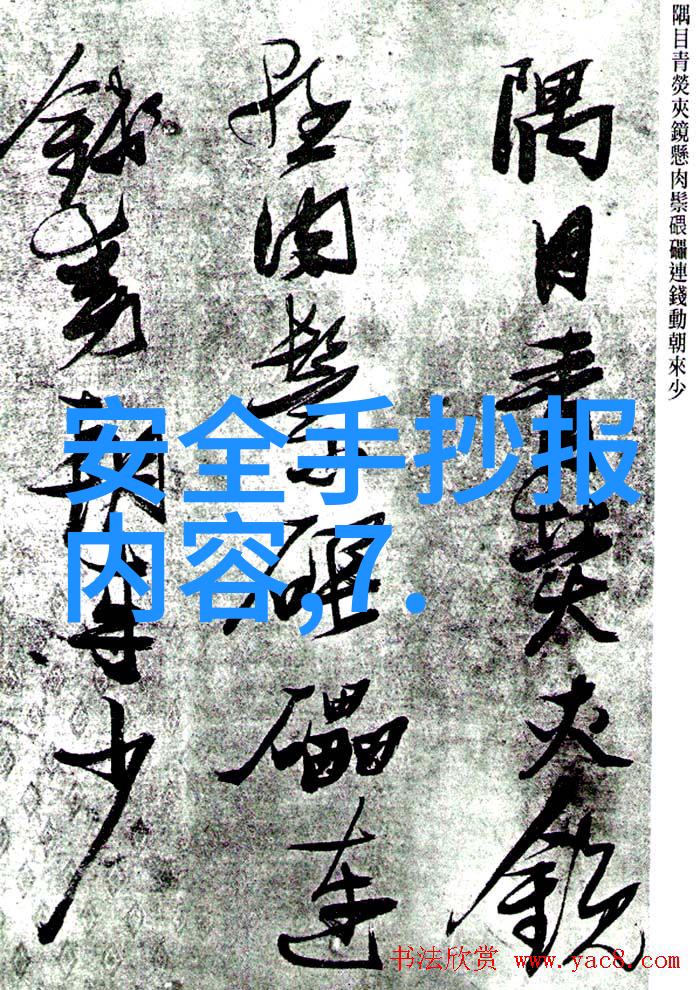 隅目青熒夾鏡懸肉鬃碨礧連錢動朝來少
隅目青熒夾鏡
懸肉鬃碨礧連
錢動朝來少
安全手抄报
内容,7.
书法欣赏 www.yac8.com